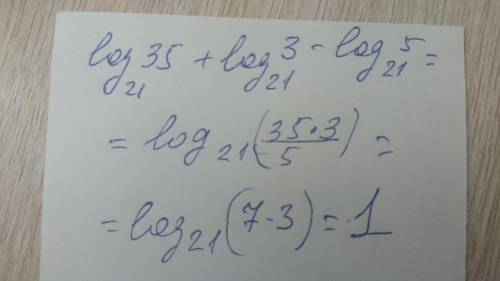 log₂₁ 35 + log₂₁ 3 - log₂₁ 5 =
= log₂₁ (35·3/5) =
= log₂₁ (7·3) = 1